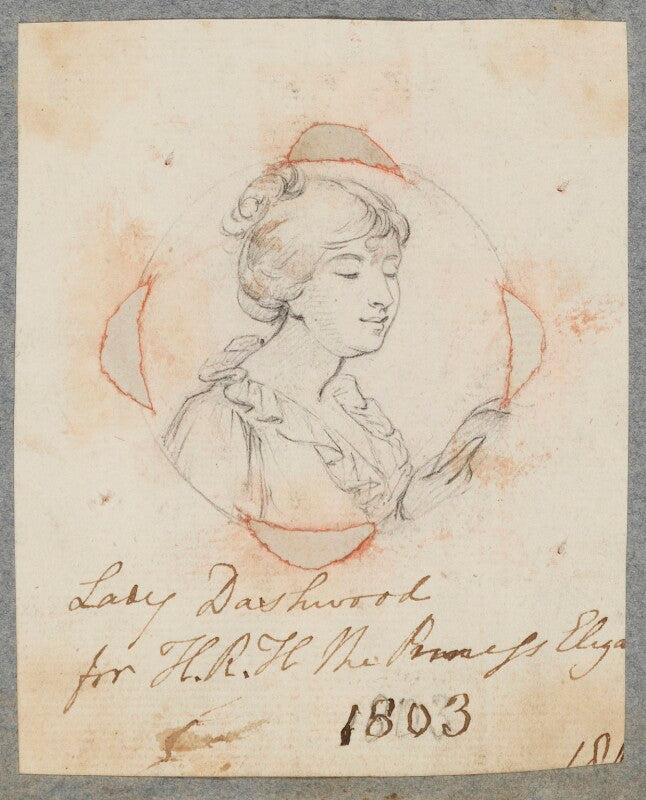 Lady Dashwood
for H.R.H The Princess Eliza
1803
181